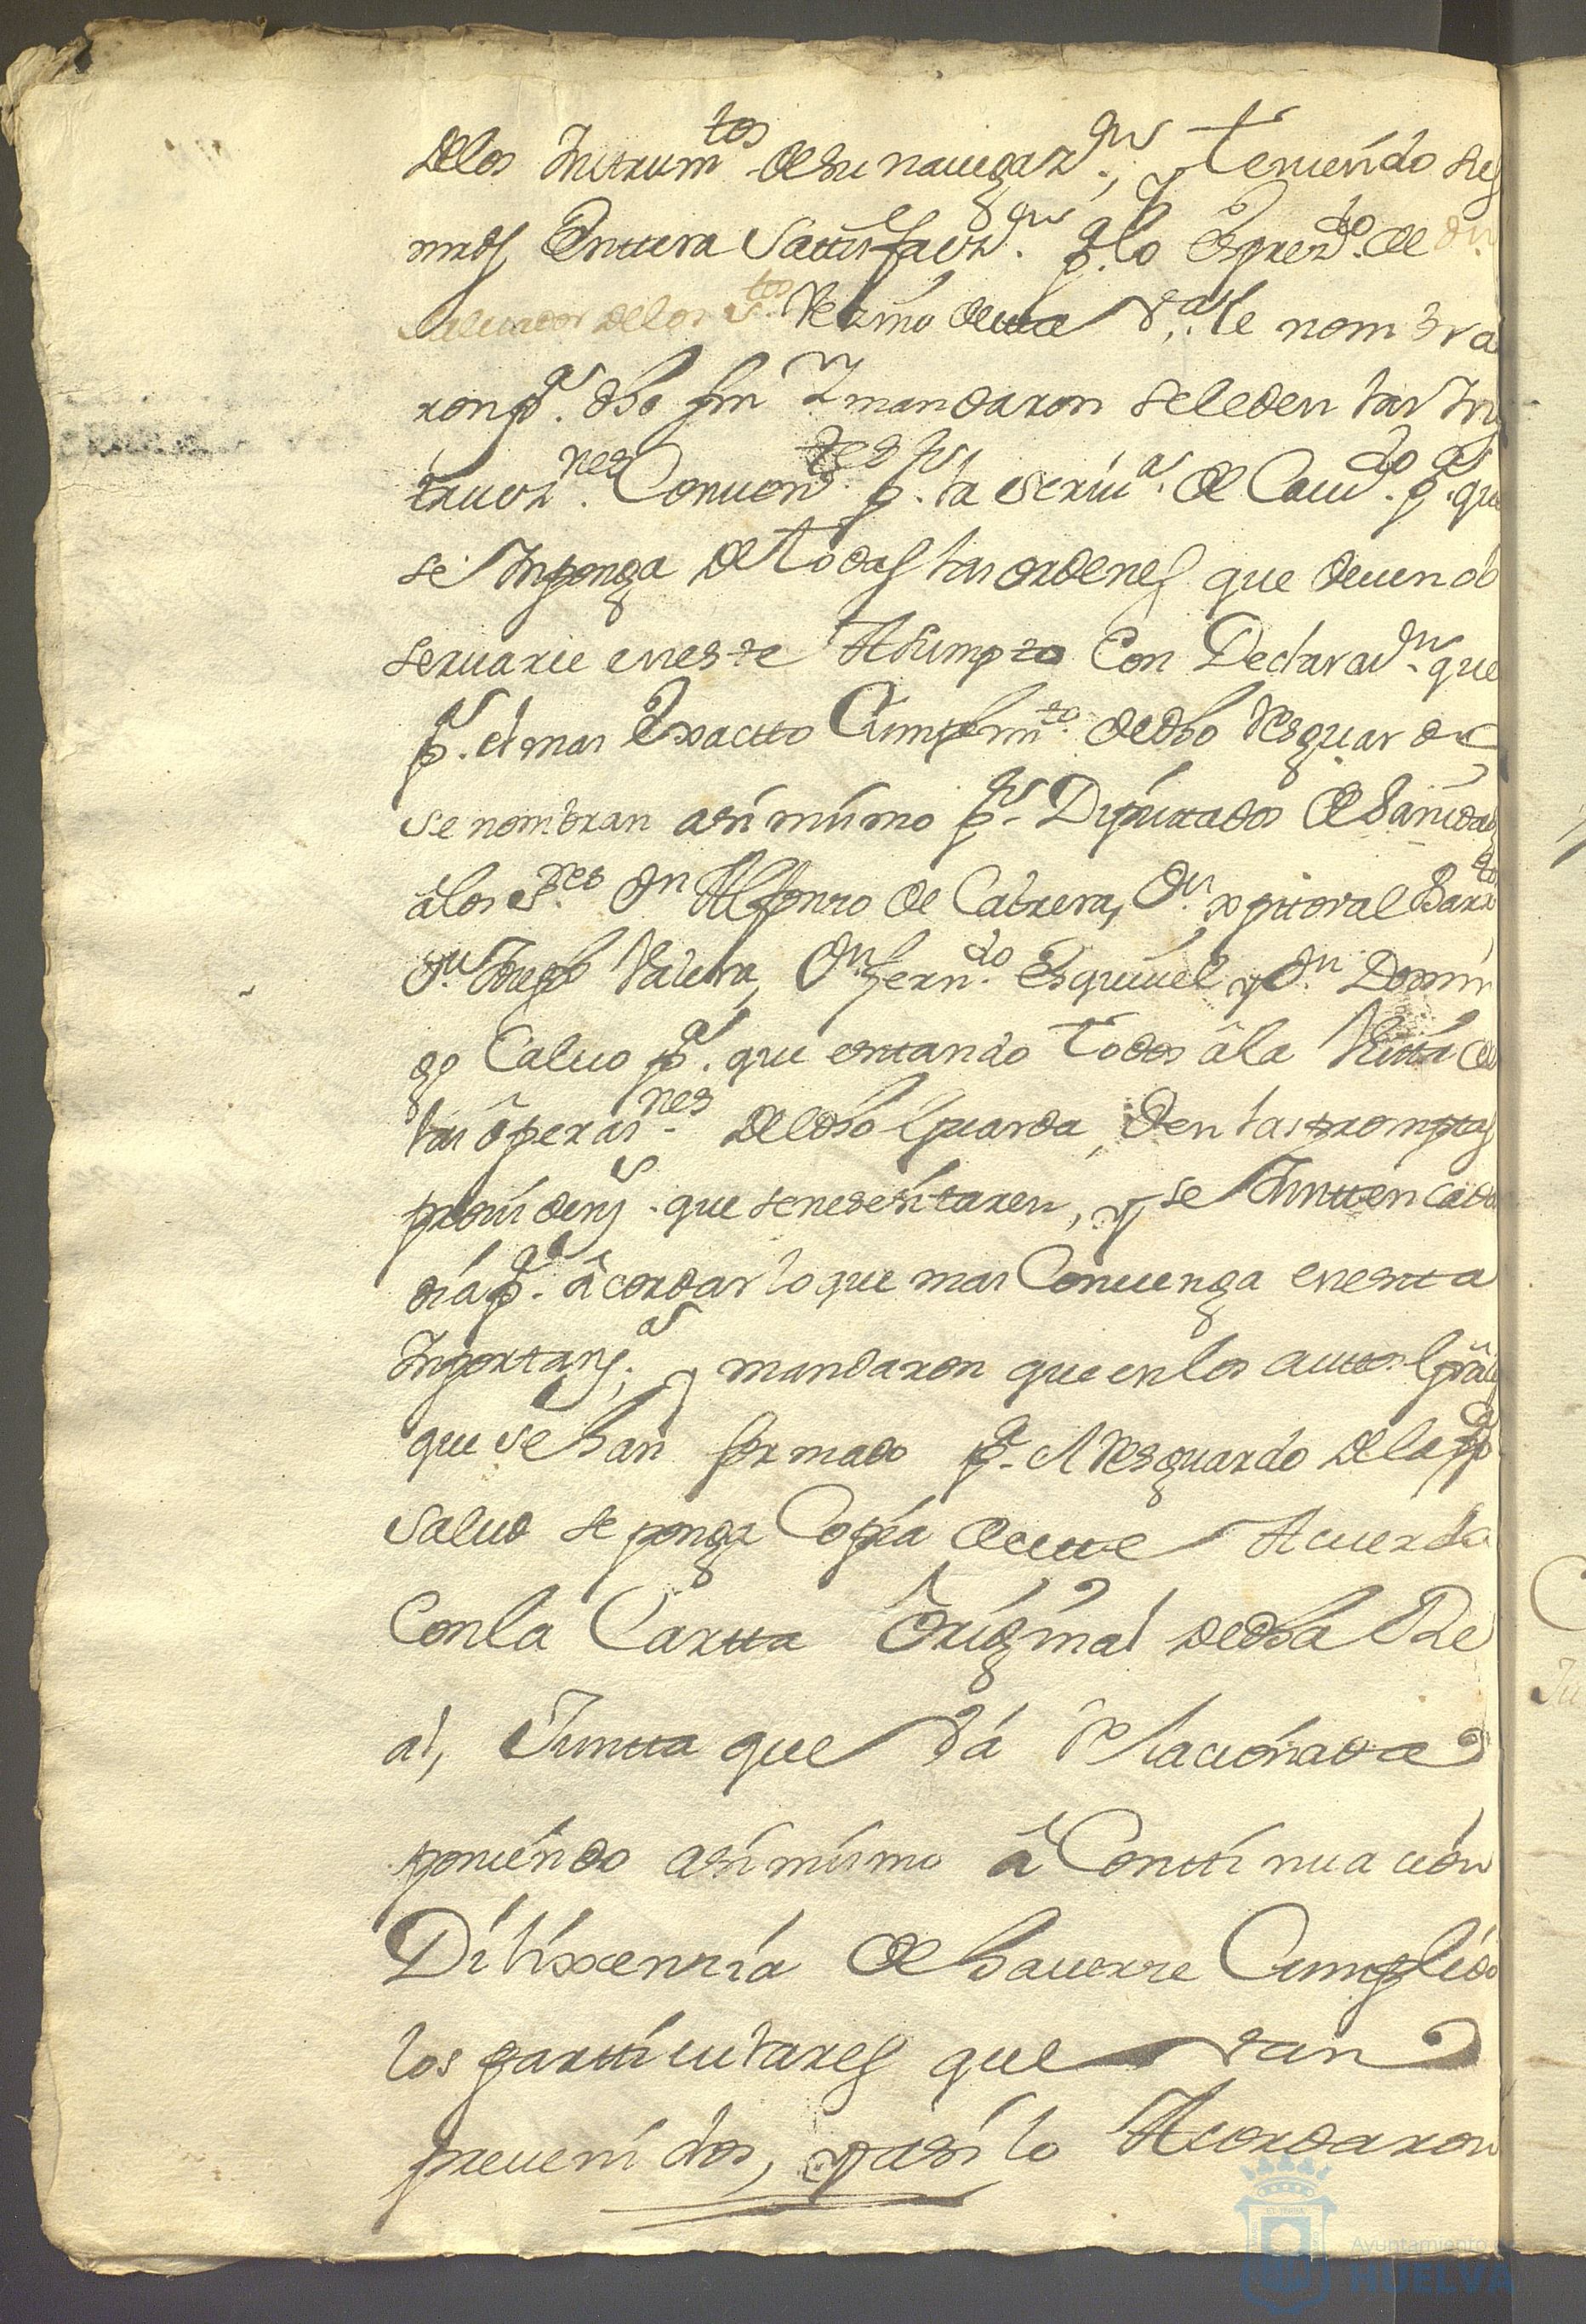 delos Instrum.tos de su nauegaz.on, y teniendo sus
mrds enttera sattisfacz.on p.r lo expres.do de Dn.
Saluador delos S.tos Vezino destta V.a le nombra
ron p.a dho fin y mandaron se le den las Ins
trucz.nes Conuen.tes p.r la escriu.a de Cauil.do p.a que
se Inponga de todas las ordenes que deuen ob
seruarse en este Asumpto Con Declaraz.on que
p.a el mas exactto Cumplim.to de dho Resguardo
se nombran asimismo p.r Diputados de Sanidad
â los S.res Dn Alfonso de Cabrera, Dn. Xpttoval Barr.to
Dn. Diego Valera, Dn. Fern.do Esquiuel y Dn. Domin
go Caluo p.a que estando todos â la Vistta de
las ôperaz.nes del dho Guarda, den las promptas
prouidenz.s que se nesesitaren, y se Juntten cada
dia p.a âcordar lo que mas Conuenga en estta
Inportanz.a; y mandaron que en los auttos Grâles
que se han formado p.a el Resguardo de la pp.ca
Salud se ponga Copia de estte Acuerdo
Con la Cartta Original de dha Re
al, Juntta que Vá Relacionada
poniendo asimismo â Conttinuacion
Dilixenzia de hauerse Cumplido
los partticulares que van
preuenidos, y asi lo Acordaron
Ayuntamiento
HUELVA